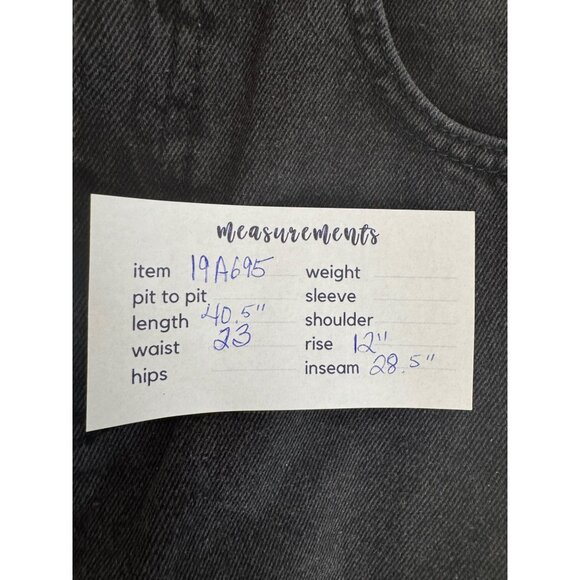 measurements
item 19A695
pit to pit
length 40.5"
waist 23
hips
weight
sleeve
shoulder
rise 12"
inseam 28.5"